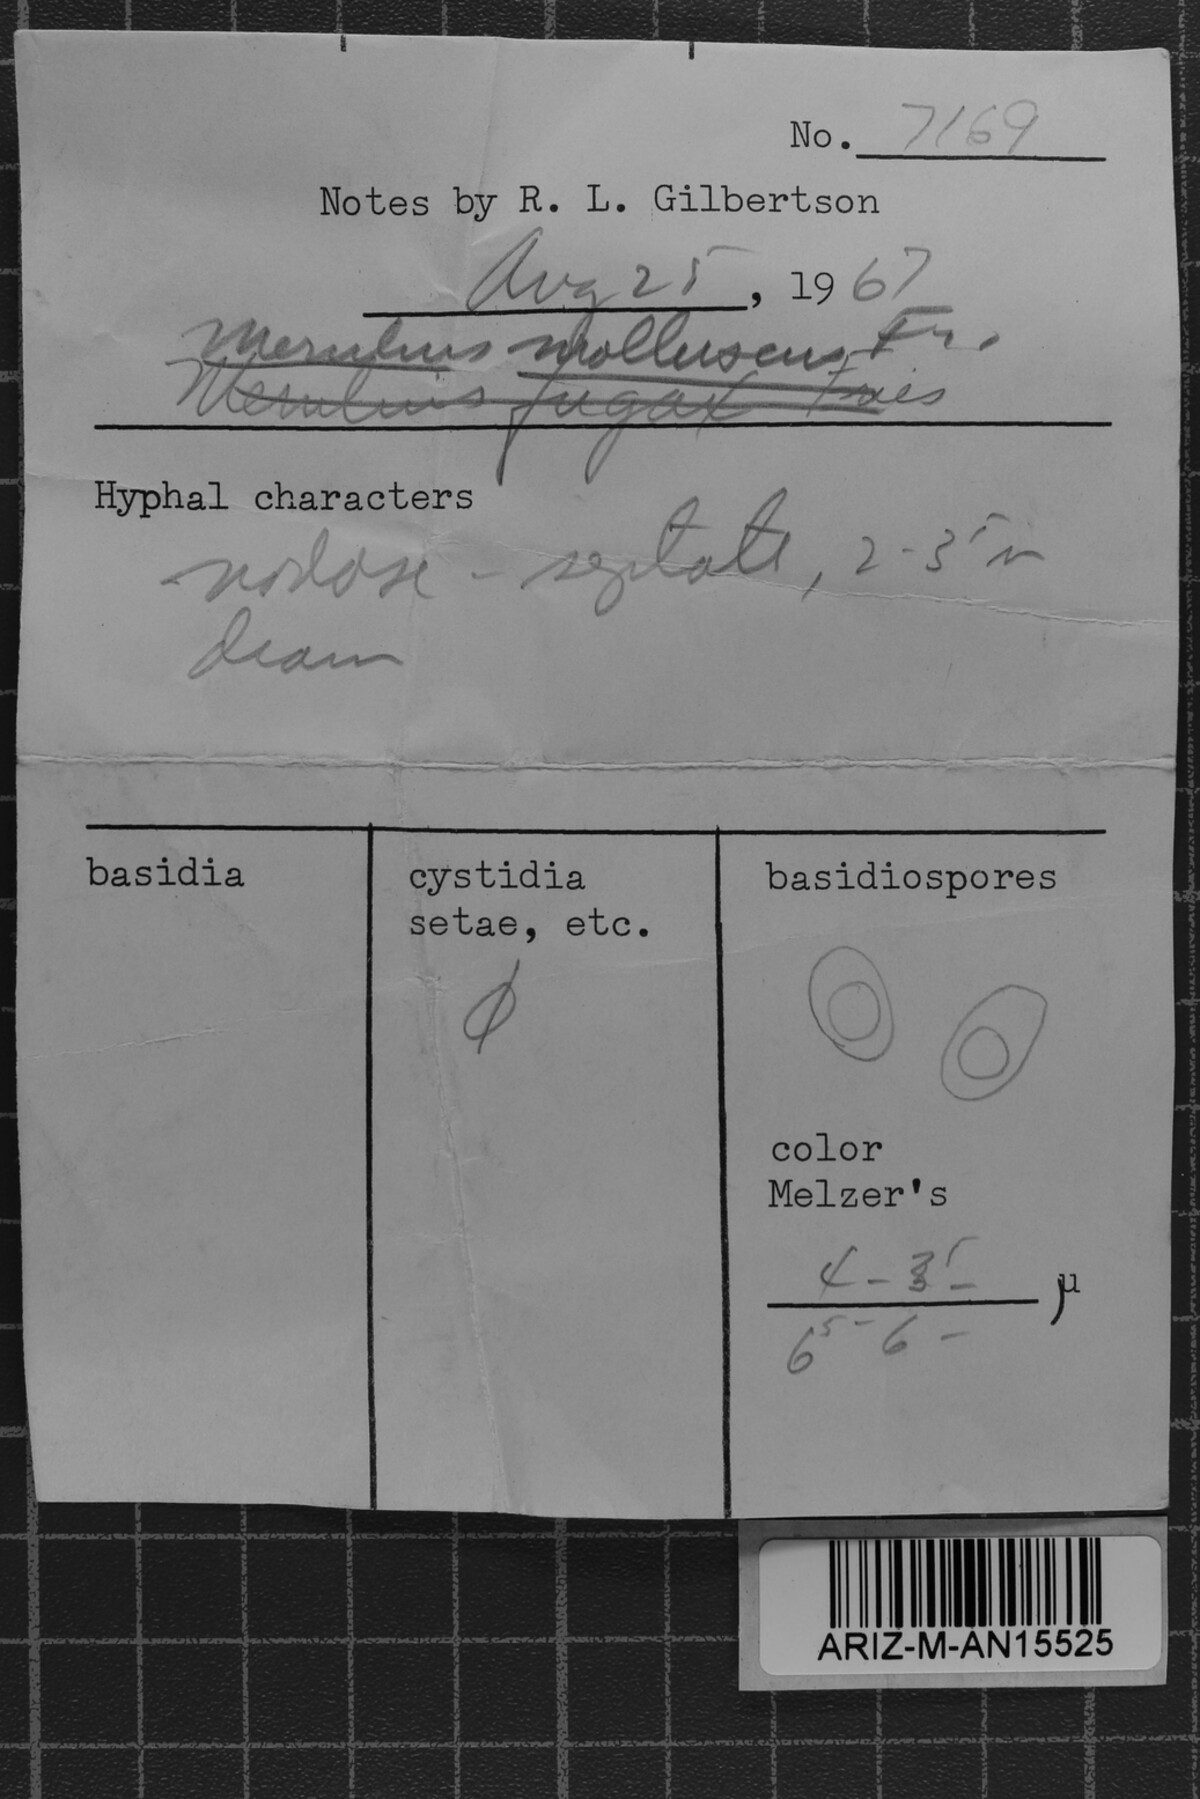 No. 7169
Notes by R. L. Gilbertson
Aug 25, 1967
Merulius molluscus Fr.
Merulius fugax Fries
Hyphal characters
nodose - septate, 2-3⁵ m
diam
basidia
cystidia
setae, etc.
ϕ
basidiospores
color
Melzer's
4 - 3⁵ - µ
6⁵ - 6 -
ARIZ-M-AN15525